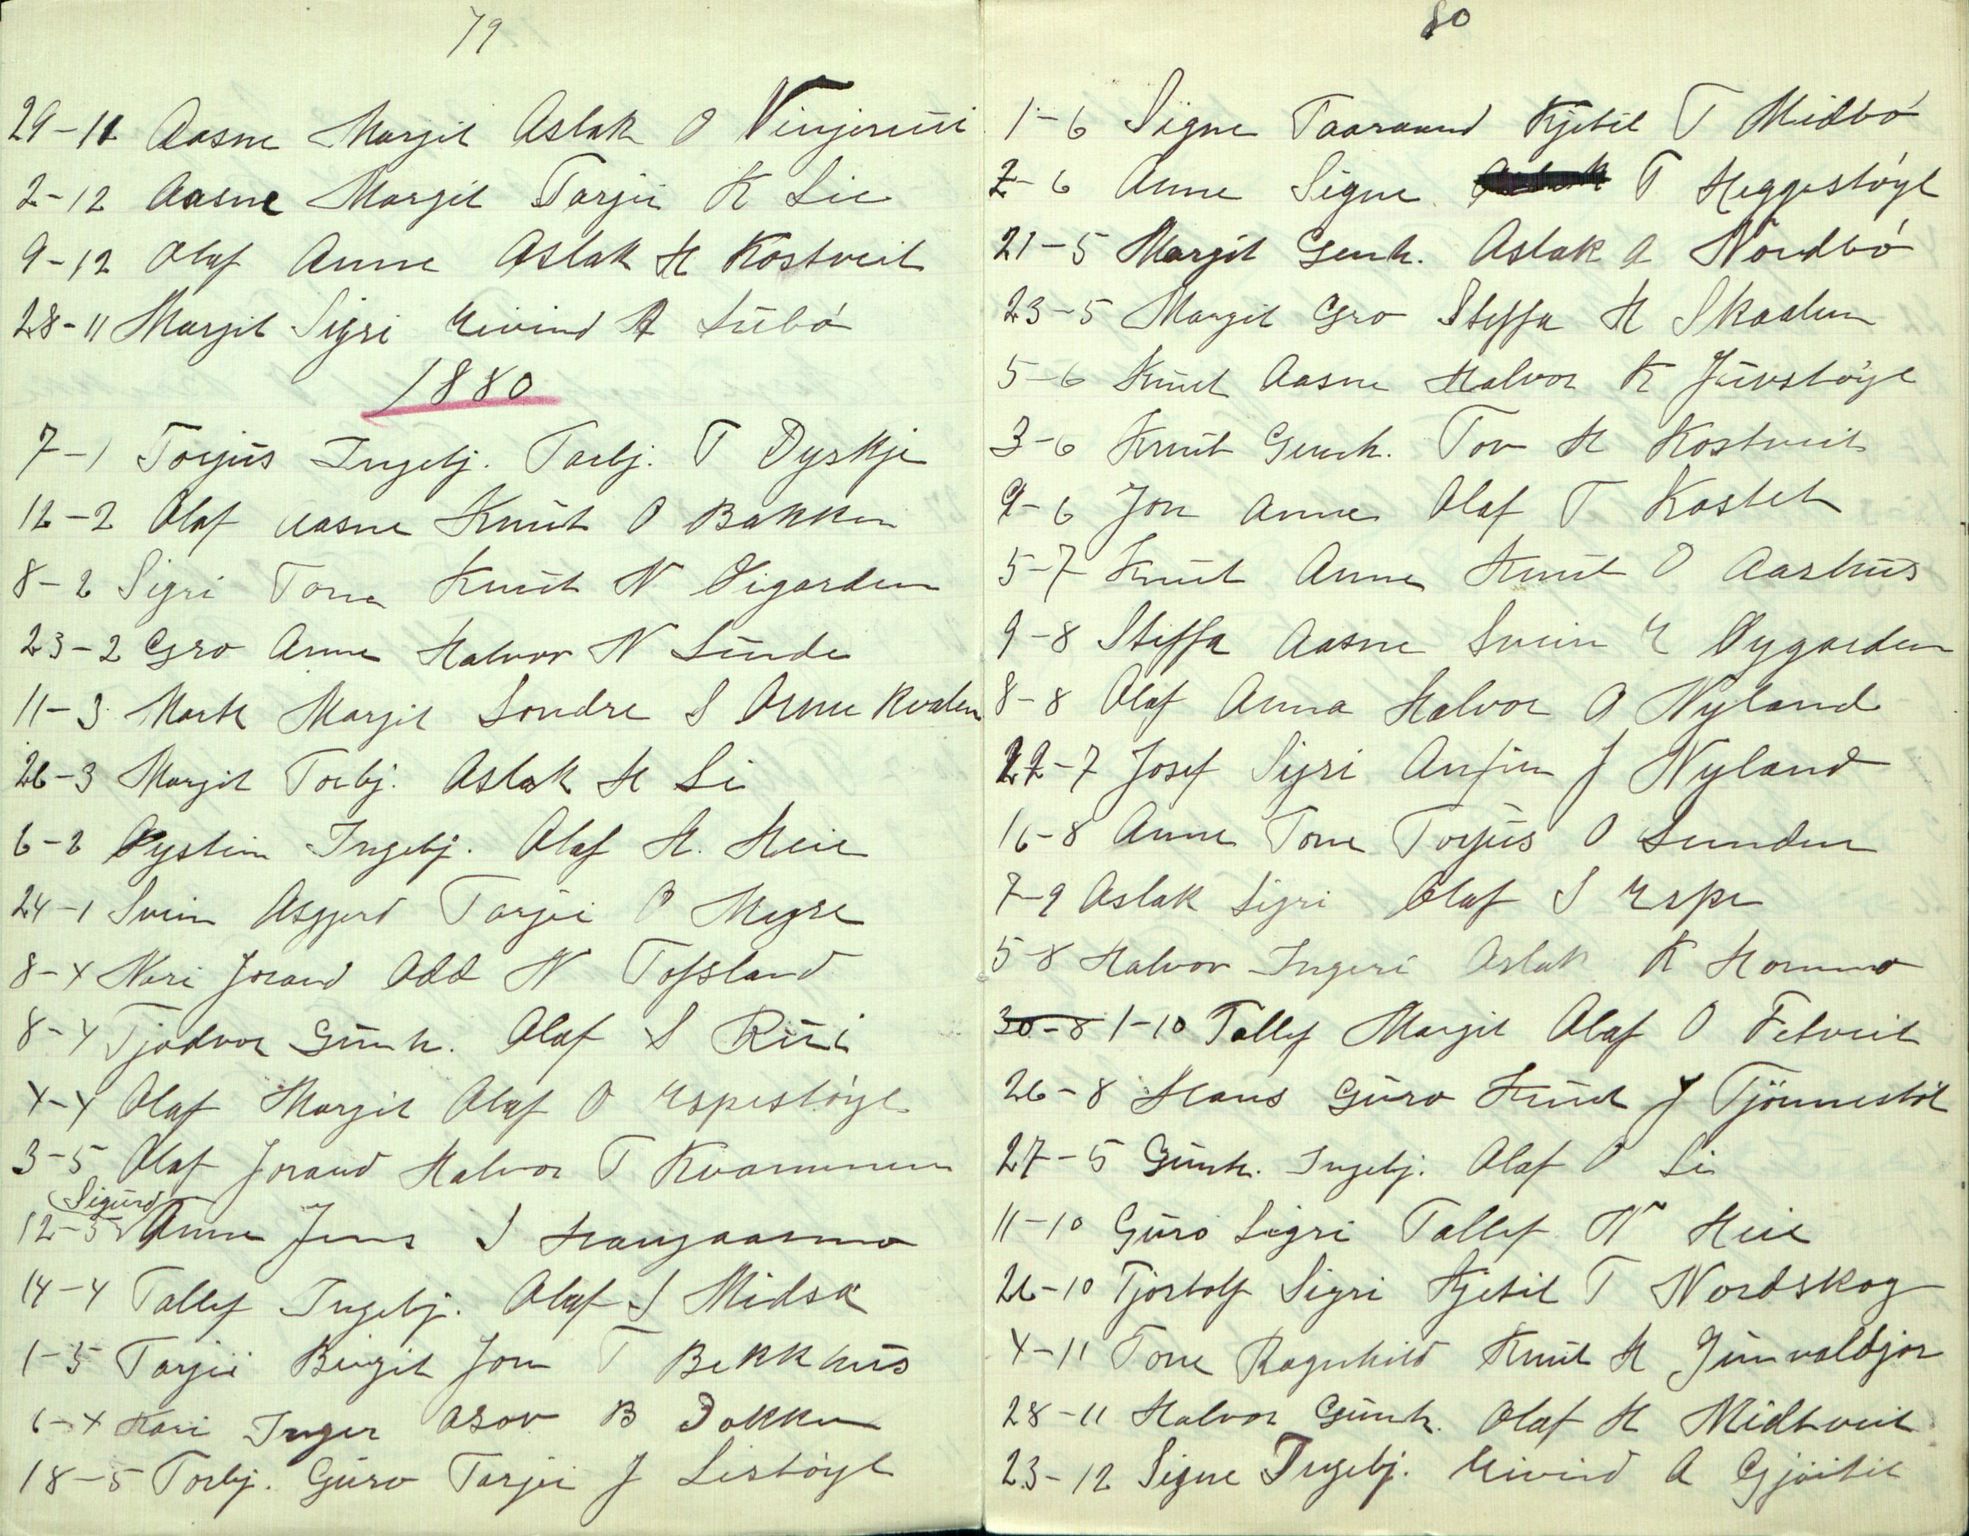 79
29-11 Aasne Margit Aslak O Vinjerui
2-12 Aasne Margit Tarjei K Lie
9-12 Olaf Anne Aslak H Kostveit
28-11 Margit Sigri Eivind A Lubö
1880
7-1 Torjus Ingebj. Torbj. T Dyskje
12-2 Olaf Aasne Knut O Bakken
8-2 Sigri Tone Knut N Öigarden
23-2 Gro Anne Halvor N Sunde
11-3 Margit Sondre S Kvalen
26-3 Margit Torbj. Aslak H Li
6-2 Øystein Ingebj. Olaf H. Heie
24-1 Svein Asgjerd Tarjei O Mogre
8-4 Nari Jorand Odd N Tofsland
8-4 Tjodvor Gunh. Olaf S Rui
4-4 Olaf Margit Olaf O Espestöyl
3-5 Olaf Jorand Halvor T Kvammen
(Sigurd)
12-5 Anne Jens S Haugaasmo
14-4 Tallef Ingebj. Olaf S Midsæ
1-5 Tarjei Birgit Jon T Bekkhus
6-4 Kari Inger Asov B Dokken
18-5 Torbj. Guro Tarjei J Listöyl
80
1-6 Signe Taaraand Kjetil T Midbö
2-6 Anne Signe T Heggestöyl
21-5 Margit Gunh. Aslak A Nordbö
23-5 Margit Gro Steffa H Skaalen
5-6 Knut Aasne Halvor K Juvstöyl
3-6 Knut Gunh. Tov H Kostveit
9-6 Jon Anne Olaf T Kostet
5-7 Knut Anne Knut O Aashus
9-8 Steffa Aasne Svein E Öygarden
8-8 Olaf Anna Halvor O Nyland
22-7 Josef Sigri Anfin J Nyland
16-8 Anne Tone Torjus O Lunden
7-9 Aslak Sigri Olaf S Espe
5-8 Halvor Ingeri Aslak K Hommo
30-8 1-10 Tallef Margit Olaf O Felveit
26-8 Hans Guro Knut J Tjönnestöl
27-5 Gunh. Ingebj. Olaf O Li
11-10 Guro Sigri Tallef N Heie
26-10 Tjostolf Sigri Kjetil T Nordskog
4-11 Tone Ragnhild Knut H Junvaldjor
28-11 Halvor Gunh. Olaf H Midtveit
23-12 Signe Ingebj. Eivind A Gjöitil